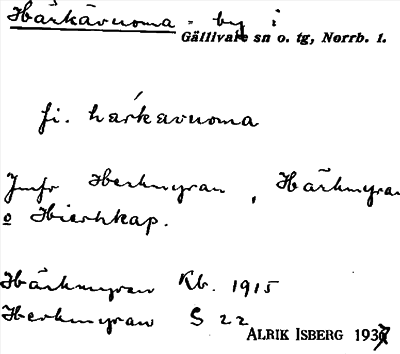 Härkävuoma - by i
Gällivare sn o. tg, Norrb. l.
fi. harkavuoma
Jmfr Herkmyran, Härkmyran
o Hierhkap.
Härkmyran Kb. 1915
Herkmyran S 22
ALRIK ISBERG 1937